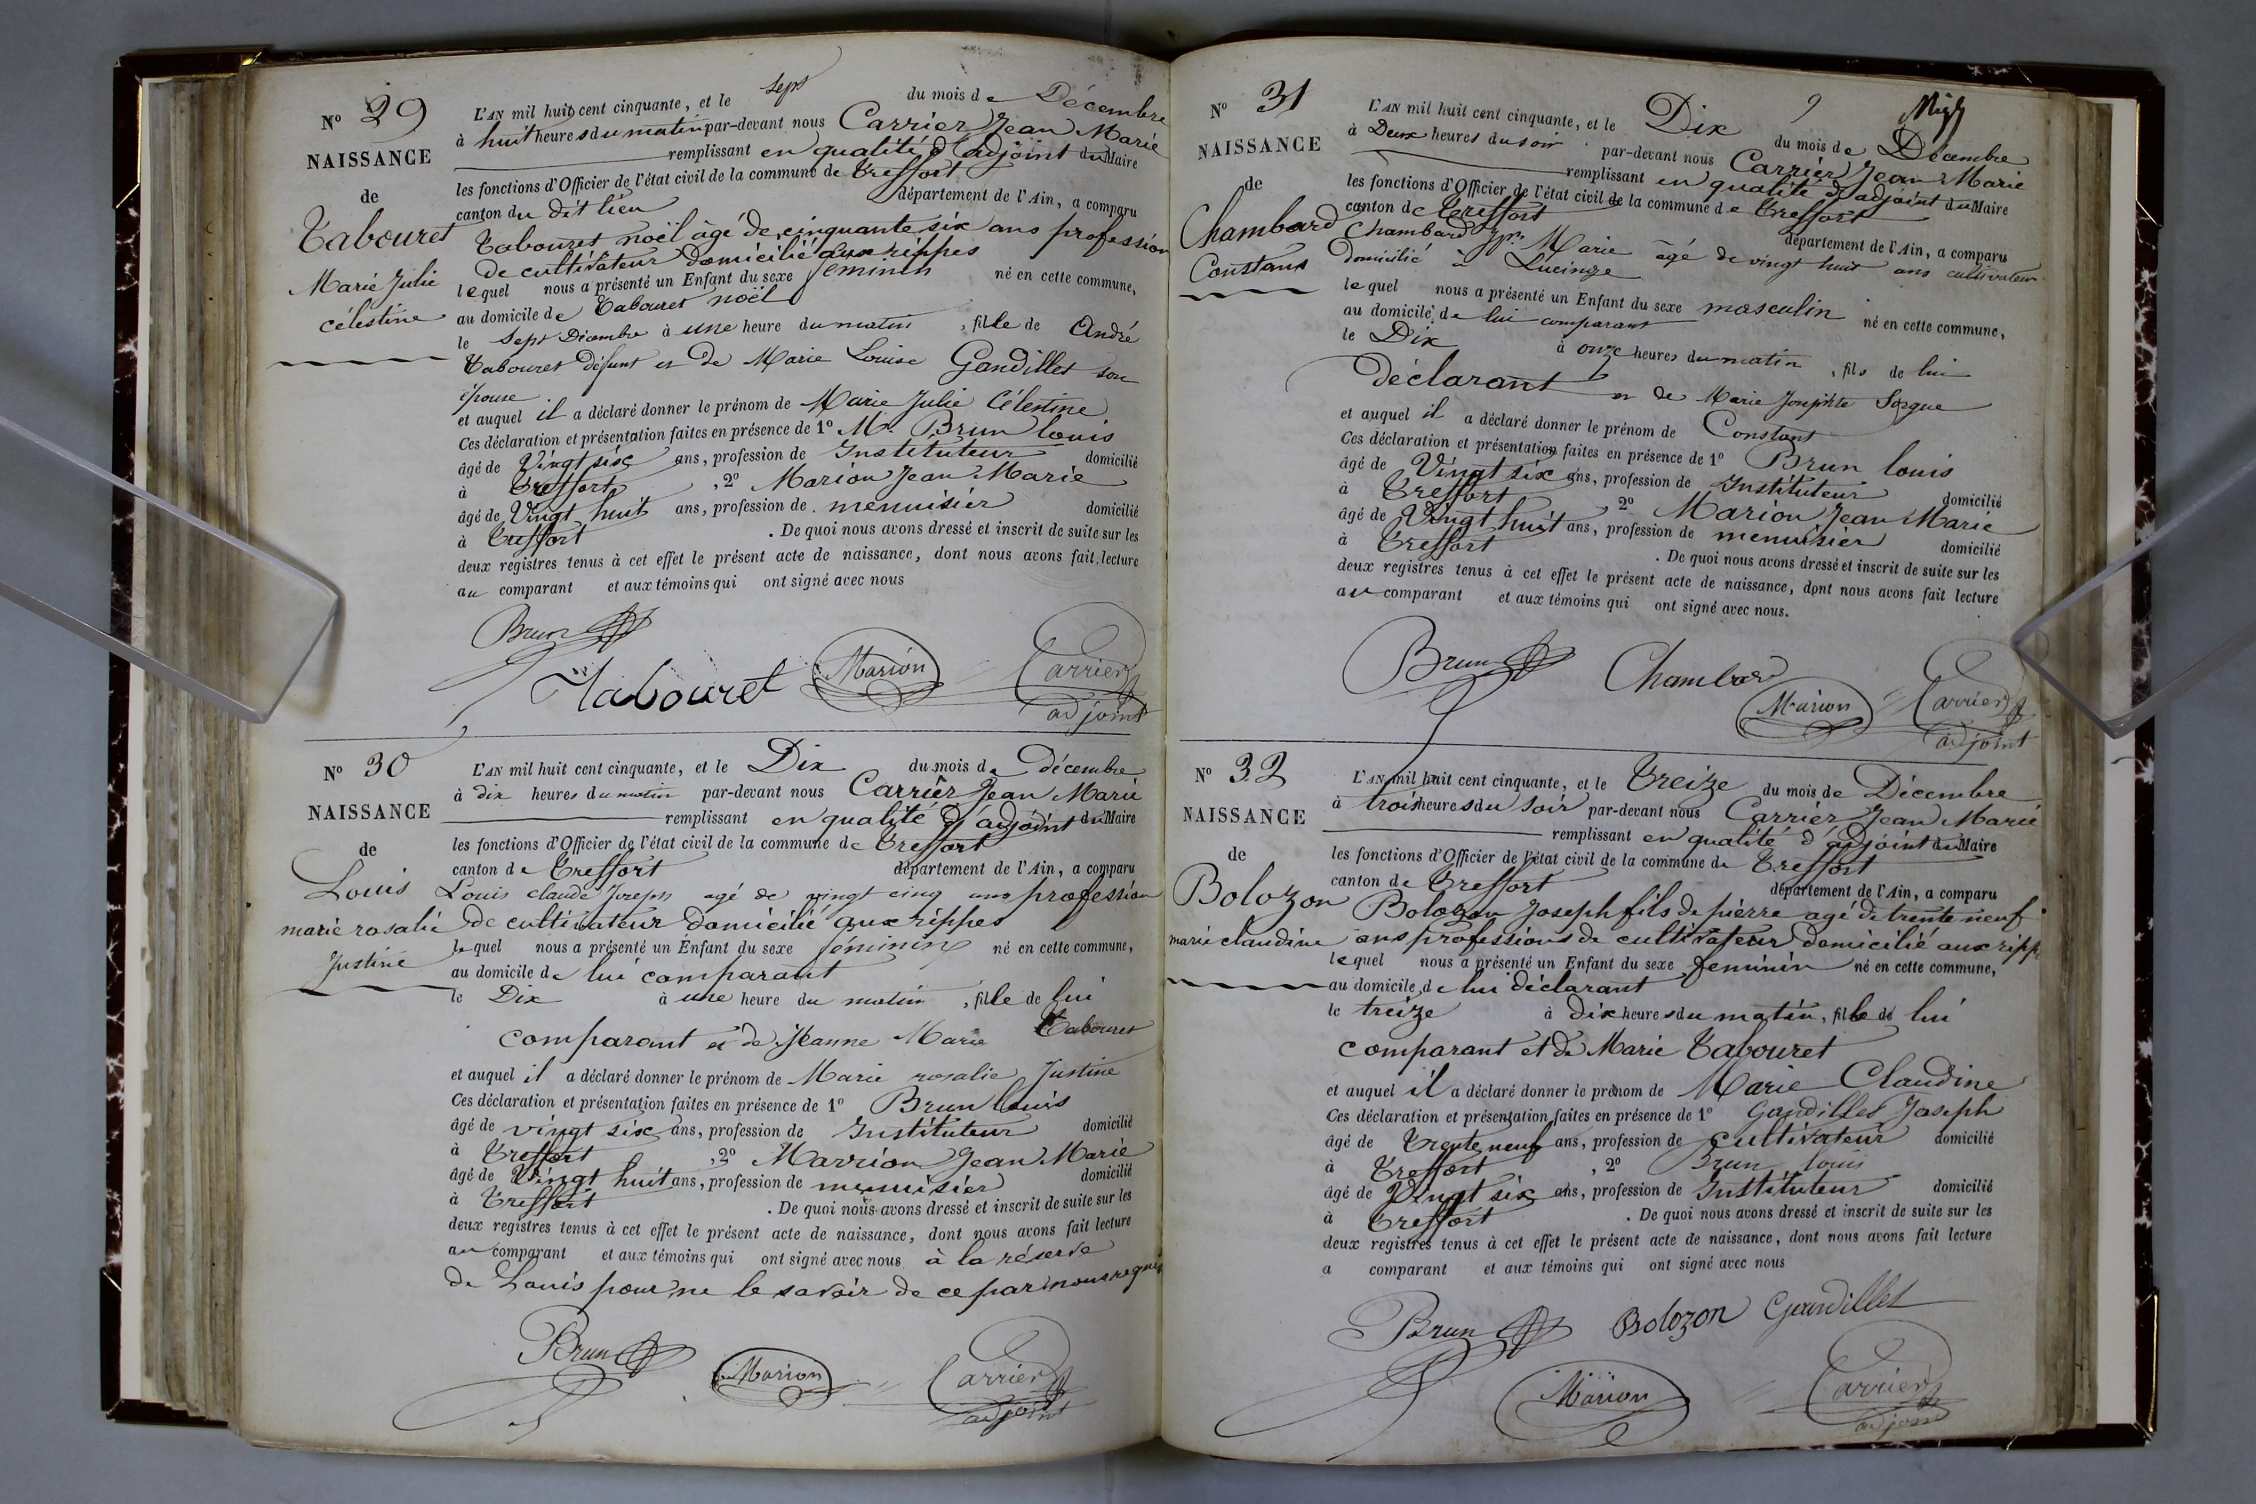 N° 29
NAISSANCE
de
Tabouret
Marie Julie
célestine
L'AN mil huit cent cinquante, et le sept du mois de Décembre
à huit heures du matin par-devant nous Carrier Jean Marie
remplissant en qualité d'adjoint du Maire
les fonctions d'Officier de l'état civil de la commune de Treffort
canton du dit lieu département de l'Ain, a comparu
Tabouret noël âgé de cinquante six ans profession
de cultivateur domicilié aux rippes
lequel nous a présenté un Enfant du sexe féminin né en cette commune,
au domicile de Tabouret noël
le sept Décembre à une heure du matin, fille de André
Tabouret défunt et de Marie Louise Gandillet son
épouse
et auquel il a déclaré donner le prénom de Marie Julie Célestine
Ces déclaration et présentation faites en présence de 1° Mr. Brun louis
âgé de Vingt six ans, profession de Instituteur domicilié
à Treffort, 2° Marion Jean Marie
âgé de Vingt huit ans, profession de menuisier domicilié
à Treffort. De quoi nous avons dressé et inscrit de suite sur les
deux registres tenus à cet effet le présent acte de naissance, dont nous avons fait lecture
au comparant et aux témoins qui ont signé avec nous
Brun
Tabouret Marion Carrier
adjoint
N° 30
NAISSANCE
de
Louis
marie rosalie
Justine
L'AN mil huit cent cinquante, et le Dix du mois de décembre
à dix heures du matin par-devant nous Carrier Jean Marie
remplissant en qualité d'adjoint du Maire
les fonctions d'Officier de l'état civil de la commune de Treffort
canton de Treffort département de l'Ain, a comparu
Louis claude Joseph agé de vingt cinq ans profession
de cultivateur domicilié aux rippes
lequel nous a présenté un Enfant du sexe féminin né en cette commune,
au domicile de lui comparant
le Dix à une heure du matin, fille de lui
comparant et de Jeanne Marie Tabouret
et auquel il a déclaré donner le prénom de Marie rosalie Justine
Ces déclaration et présentation faites en présence de 1° Brun louis
âgé de vingt six ans, profession de Instituteur domicilié
à Treffort, 2° Marrion Jean Marie
âgé de Vingt huit ans, profession de menuisier domicilié
à Treffort. De quoi nous avons dressé et inscrit de suite sur les
deux registres tenus à cet effet le présent acte de naissance, dont nous avons fait lecture
au comparant et aux témoins qui ont signé avec nous à la réserve
de Louis pour ne le savoir de ce par nous requis
Brun
Marion Carrier
adjoint
N° 31
NAISSANCE
de
Chambard
Constant
L'AN mil huit cent cinquante, et le Dix du mois de Décembre
à Deux heures du soir par-devant nous Carrier Jean Marie
remplissant en qualité d'adjoint du Maire
les fonctions d'Officier de l'état civil de la commune de Treffort
canton de Treffort département de l'Ain, a comparu
Chambard Marie âgé de vingt huit ans cultivateur
domicilié à Lucinge
lequel nous a présenté un Enfant du sexe masculin né en cette commune,
au domicile de lui comparant
le Dix à onze heures du matin, fils de lui
déclarant et de Marie Josephte
et auquel il a déclaré donner le prénom de Constant
Ces déclaration et présentation faites en présence de 1° Brun louis
âgé de Vingt six ans, profession de Instituteur domicilié
à Treffort, 2° Marion Jean Marie
âgé de Vingt huit ans, profession de menuisier domicilié
à Treffort. De quoi nous avons dressé et inscrit de suite sur les
deux registres tenus à cet effet le présent acte de naissance, dont nous avons fait lecture
au comparant et aux témoins qui ont signé avec nous.
Brun Chambard
Marion Carrier
adjoint
N° 32
NAISSANCE
de
Bolozon
marie claudine
L'AN mil huit cent cinquante, et le Treize du mois de Décembre
à trois heures du soir par-devant nous Carrier Jean Marie
remplissant en qualité d'adjoint du Maire
les fonctions d'Officier de l'état civil de la commune de Treffort
canton de Treffort département de l'Ain, a comparu
Bolozon Joseph fils de pierre agé de trente neuf
ans professions de cultivateur domicilié aux ripp
lequel nous a présenté un Enfant du sexe feminin né en cette commune,
au domicile de lui déclarant
le treize à dix heures du matin, fille de lui
comparant et de Marie Tabouret
et auquel il a déclaré donner le prénom de Marie Claudine
Ces déclaration et présentation faites en présence de 1° Gandillet Joseph
âgé de Trente neuf ans, profession de cultivateur domicilié
à Treffort, 2° Brun louis
âgé de Vingt six ans, profession de Instituteur domicilié
à Treffort. De quoi nous avons dressé et inscrit de suite sur les
deux registres tenus à cet effet le présent acte de naissance, dont nous avons fait lecture
a comparant et aux témoins qui ont signé avec nous
Brun Bolozon Gandillet
Marion Carrier
adjoint